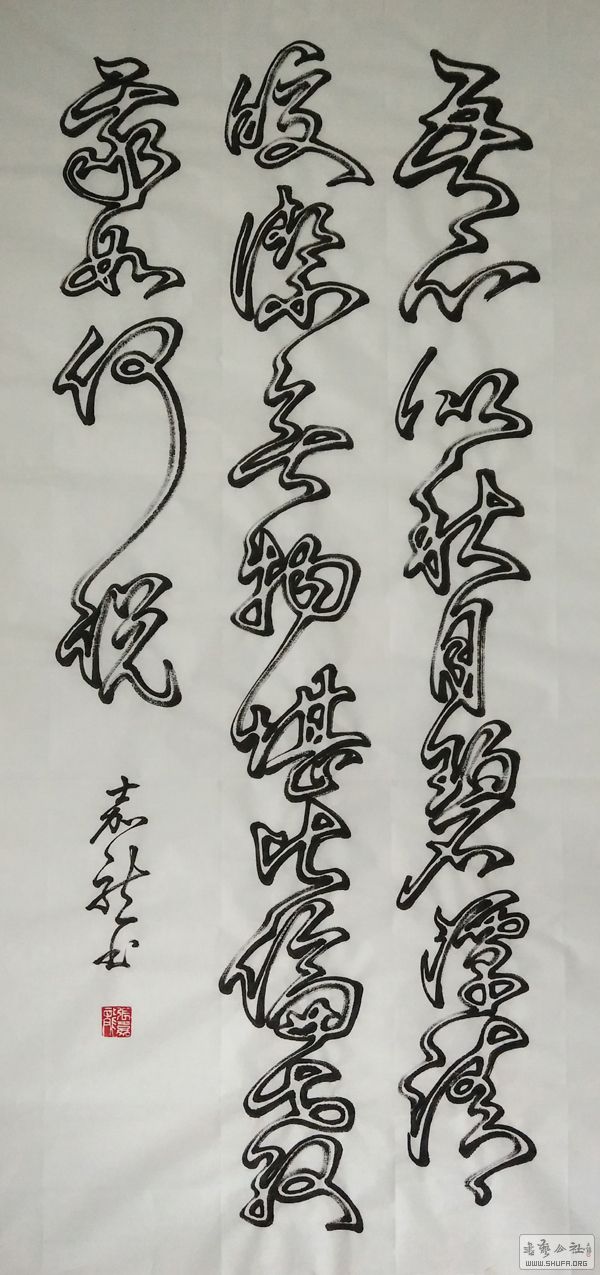 吾心似秋月碧潭清
皎潔无物堪比倫教
我如何説
嘉龍书
書藝公社
WWW.SHUFA.ORG